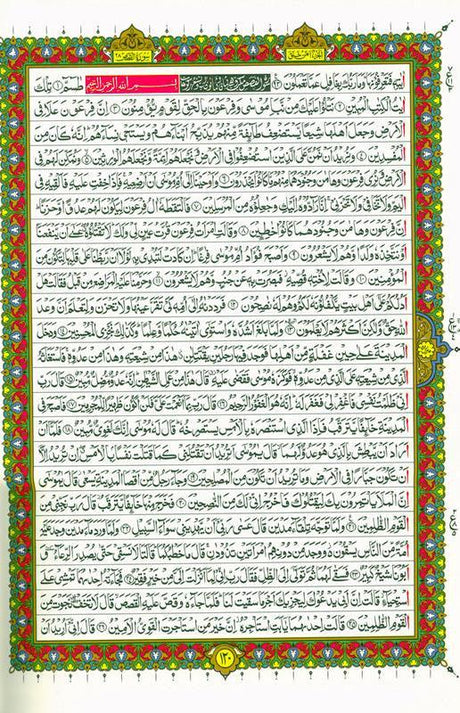 ءَايَٰتِهِۦ فَتَعْرِفُونَهَا وَمَا رَبُّكَ بِغَٰفِلٍ عَمَّا تَعْمَلُونَ ٩٣ بِسْمِ اللَّهِ الرَّحْمَٰنِ الرَّحِيمِ طسٓمٓ ١ تِلْكَ
ءَايَٰتُ الْكِتَٰبِ الْمُبِينِ ٢ نَتْلُوا عَلَيْكَ مِن نَّبَإِ مُوسَىٰ وَفِرْعَوْنَ بِالْحَقِّ لِقَوْمٍ يُؤْمِنُونَ ٣ إِنَّ فِرْعَوْنَ عَلَا فِي
الْأَرْضِ وَجَعَلَ أَهْلَهَا شِيَعًا يَسْتَضْعِفُ طَائِفَةً مِّنْهُمْ يُذَبِّحُ أَبْنَاءَهُمْ وَيَسْتَحْيِي نِسَاءَهُمْ إِنَّهُ كَانَ مِنَ
الْمُفْسِدِينَ ٤ وَنُرِيدُ أَن نَّمُنَّ عَلَى الَّذِينَ اسْتُضْعِفُوا فِي الْأَرْضِ وَنَجْعَلَهُمْ أَئِمَّةً وَنَجْعَلَهُمُ الْوَٰرِثِينَ ٥ وَنُمَكِّنَ لَهُمْ فِي
الْأَرْضِ وَنُرِيَ فِرْعَوْنَ وَهَٰمَٰنَ وَجُنُودَهُمَا مِنْهُم مَّا كَانُوا يَحْذَرُونَ ٦ وَأَوْحَيْنَا إِلَىٰ أُمِّ مُوسَىٰ أَنْ أَرْضِعِيهِ فَإِذَا خِفْتِ عَلَيْهِ فَأَلْقِيهِ فِي
الْيَمِّ وَلَا تَخَافِي وَلَا تَحْزَنِي إِنَّا رَادُّوهُ إِلَيْكِ وَجَاعِلُوهُ مِنَ الْمُرْسَلِينَ ٧ فَالْتَقَطَهُ ءَالُ فِرْعَوْنَ لِيَكُونَ لَهُمْ عَدُوًّا وَحَزَنًا
إِنَّ فِرْعَوْنَ وَهَٰمَٰنَ وَجُنُودَهُمَا كَانُوا خَٰطِئِينَ ٨ وَقَالَتِ امْرَأَتُ فِرْعَوْنَ قُرَّتُ عَيْنٍ لِّي وَلَكَ لَا تَقْتُلُوهُ عَسَىٰ أَن يَنفَعَنَا
أَوْ نَتَّخِذَهُ وَلَدًا وَهُمْ لَا يَشْعُرُونَ ٩ وَأَصْبَحَ فُؤَادُ أُمِّ مُوسَىٰ فَٰرِغًا إِن كَادَتْ لَتُبْدِي بِهِ لَوْلَا أَن رَّبَطْنَا عَلَىٰ قَلْبِهَا لِتَكُونَ مِنَ
الْمُؤْمِنِينَ ١٠ وَقَالَتْ لِأُخْتِهِ قُصِّيهِ فَبَصُرَتْ بِهِ عَن جُنُبٍ وَهُمْ لَا يَشْعُرُونَ ١١ وَحَرَّمْنَا عَلَيْهِ الْمَرَاضِعَ مِن قَبْلُ فَقَالَتْ هَلْ
أَدُلُّكُمْ عَلَىٰ أَهْلِ بَيْتٍ يَكْفُلُونَهُ لَكُمْ وَهُمْ لَهُ نَٰصِحُونَ ١٢ فَرَدَدْنَٰهُ إِلَىٰ أُمِّهِ كَيْ تَقَرَّ عَيْنُهَا وَلَا تَحْزَنَ وَلِتَعْلَمَ أَنَّ وَعْدَ
اللَّهِ حَقٌّ وَلَٰكِنَّ أَكْثَرَهُمْ لَا يَعْلَمُونَ ١٣ وَلَمَّا بَلَغَ أَشُدَّهُ وَاسْتَوَىٰ ءَاتَيْنَٰهُ حُكْمًا وَعِلْمًا وَكَذَٰلِكَ نَجْزِي الْمُحْسِنِينَ ١٤ وَدَخَلَ
الْمَدِينَةَ عَلَىٰ حِينِ غَفْلَةٍ مِّنْ أَهْلِهَا فَوَجَدَ فِيهَا رَجُلَيْنِ يَقْتَتِلَانِ هَٰذَا مِن شِيعَتِهِ وَهَٰذَا مِنْ عَدُوِّهِ فَاسْتَغَٰثَهُ
الَّذِي مِن شِيعَتِهِ عَلَى الَّذِي مِنْ عَدُوِّهِ فَوَكَزَهُ مُوسَىٰ فَقَضَىٰ عَلَيْهِ قَالَ هَٰذَا مِنْ عَمَلِ الشَّيْطَٰنِ إِنَّهُ عَدُوٌّ مُّضِلٌّ مُّبِينٌ ١٥ قَالَ رَبِّ
إِنِّي ظَلَمْتُ نَفْسِي فَاغْفِرْ لِي فَغَفَرَ لَهُ إِنَّهُ هُوَ الْغَفُورُ الرَّحِيمُ ١٦ قَالَ رَبِّ بِمَا أَنْعَمْتَ عَلَيَّ فَلَنْ أَكُونَ ظَهِيرًا لِّلْمُجْرِمِينَ ١٧ فَأَصْبَحَ فِي
الْمَدِينَةِ خَائِفًا يَتَرَقَّبُ فَإِذَا الَّذِي اسْتَنصَرَهُ بِالْأَمْسِ يَسْتَصْرِخُهُ قَالَ لَهُ مُوسَىٰ إِنَّكَ لَغَوِيٌّ مُّبِينٌ ١٨ فَلَمَّا أَنْ
أَرَادَ أَن يَبْطِشَ بِالَّذِي هُوَ عَدُوٌّ لَّهُمَا قَالَ يَٰمُوسَىٰ أَتُرِيدُ أَن تَقْتُلَنِي كَمَا قَتَلْتَ نَفْسًا بِالْأَمْسِ إِن تُرِيدُ إِلَّا
أَن تَكُونَ جَبَّارًا فِي الْأَرْضِ وَمَا تُرِيدُ أَن تَكُونَ مِنَ الْمُصْلِحِينَ ١٩ وَجَاءَ رَجُلٌ مِّنْ أَقْصَا الْمَدِينَةِ يَسْعَىٰ قَالَ يَٰمُوسَىٰ
إِنَّ الْمَلَأَ يَأْتَمِرُونَ بِكَ لِيَقْتُلُوكَ فَاخْرُجْ إِنِّي لَكَ مِنَ النَّٰصِحِينَ ٢٠ فَخَرَجَ مِنْهَا خَائِفًا يَتَرَقَّبُ قَالَ رَبِّ نَجِّنِي مِنَ
الْقَوْمِ الظَّٰلِمِينَ ٢١ وَلَمَّا تَوَجَّهَ تِلْقَاءَ مَدْيَنَ قَالَ عَسَىٰ رَبِّي أَن يَهْدِيَنِي سَوَاءَ السَّبِيلِ ٢٢ وَلَمَّا وَرَدَ مَاءَ مَدْيَنَ وَجَدَ عَلَيْهِ
أُمَّةً مِّنَ النَّاسِ يَسْقُونَ وَوَجَدَ مِن دُونِهِمُ امْرَأَتَيْنِ تَذُودَانِ قَالَ مَا خَطْبُكُمَا قَالَتَا لَا نَسْقِي حَتَّىٰ يُصْدِرَ الرِّعَاءُ وَ
أَبُونَا شَيْخٌ كَبِيرٌ ٢٣ فَسَقَىٰ لَهُمَا ثُمَّ تَوَلَّىٰ إِلَى الظِّلِّ فَقَالَ رَبِّ إِنِّي لِمَا أَنزَلْتَ إِلَيَّ مِنْ خَيْرٍ فَقِيرٌ ٢٤ فَجَاءَتْهُ إِحْدَىٰهُمَا تَمْشِي عَلَى
اسْتِحْيَاءٍ قَالَتْ إِنَّ أَبِي يَدْعُوكَ لِيَجْزِيَكَ أَجْرَ مَا سَقَيْتَ لَنَا فَلَمَّا جَاءَهُ وَقَصَّ عَلَيْهِ الْقَصَصَ قَالَ لَا تَخَفْ نَجَوْتَ مِنَ
الْقَوْمِ الظَّٰلِمِينَ ٢٥ قَالَتْ إِحْدَىٰهُمَا يَٰأَبَتِ اسْتَأْجِرْهُ إِنَّ خَيْرَ مَنِ اسْتَأْجَرْتَ الْقَوِيُّ الْأَمِينُ ٢٦ قَالَ إِنِّي أُرِيدُ أَنْ
١٢٠